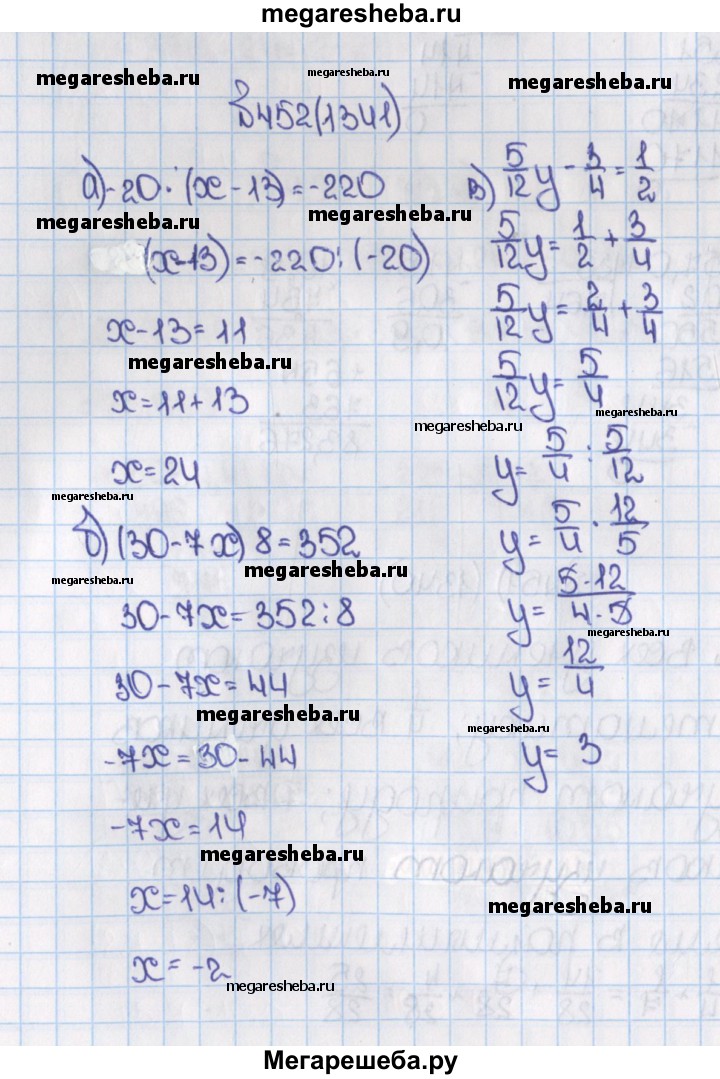 megaresheba.ru
megaresheba.ru
megaresheba.ru
megaresheba.ru
№452(1341)
а) -20·(x-13)=-220
megaresheba.ru
(x-13)=-220:(-20)
x-13=11
megaresheba.ru
x=11+13
x=24
megaresheba.ru
б)(30-7x)8=352
megaresheba.ru
megaresheba.ru
30-7x=352:8
30-7x=44
megaresheba.ru
-7x=30-44
-7x=14
megaresheba.ru
x=14:(-7)
x=-2
megaresheba.ru
в) 5/12 y - 3/4 = 1/2
megaresheba.ru
5/12 y = 1/2 + 3/4
5/12 y = 2/4 + 3/4
5/12 y = 5/4
megaresheba.ru
megaresheba.ru
y = 5/4 : 5/12
y = 5/4 · 12/5
y = 5·12/4·5
megaresheba.ru
y = 12/4
megaresheba.ru
y = 3
megaresheba.ru
Мегарешеба.ру